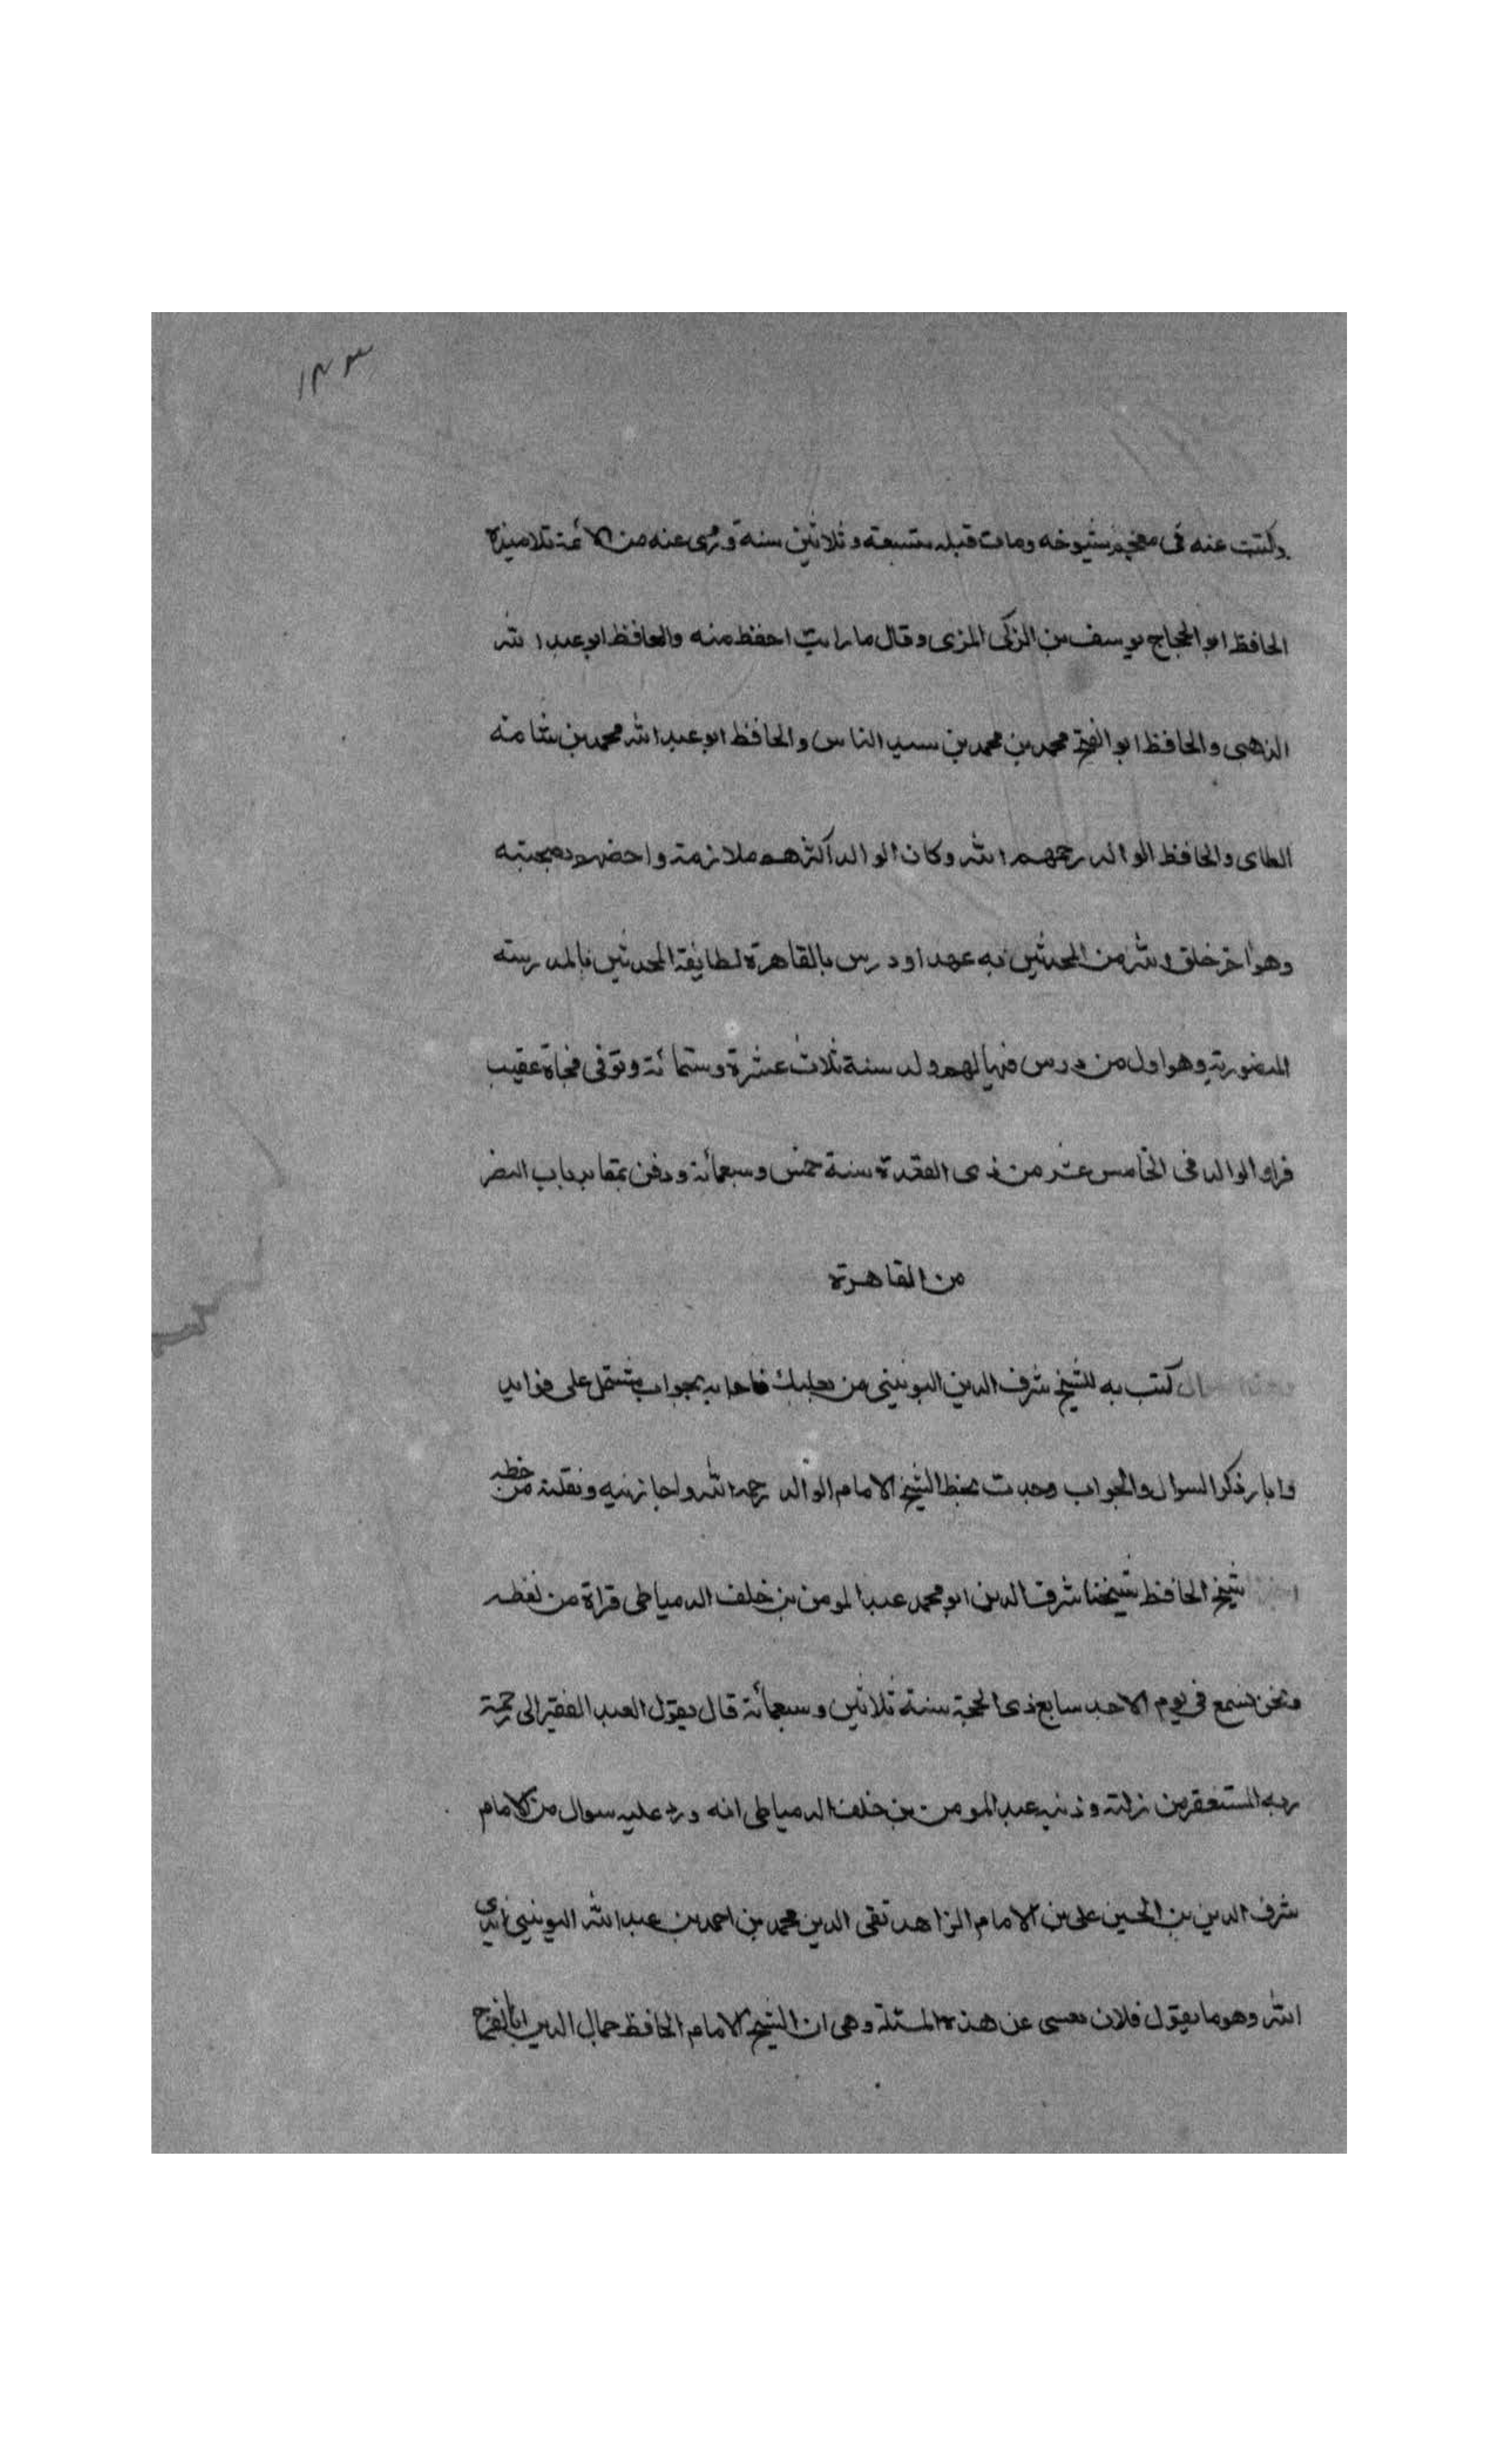 ١٣٣
وكتبت عنه فى معجم شيوخه ومات قبله بتسعة وثلاثين سنة وروى عنه من الائمة تلاميذه
الحافظ ابو الحجاج يوسف بن الزكى المزى وقال ما رايت احفظ منه والحافظ ابو عبد الله
الذهبى والحافظ ابو الفتح محمد بن محمد بن سيد الناس والحافظ ابو عبد الله محمد بن شامه
الطاى والحافظ الوالد رحمهم الله وكان الوالد اكثرهم ملازمة واخصهم بصحبته
وهو اخر خلق الله من المحدثين به عهدا ودرس بالقاهرة لطايفة المحدثين بالمدرسة
المنصورية وهو اول من درس فيها لهم ولد سنة ثلاث عشرة وستمائة وتوفى فجاة عقيب
فراق الوالد فى الخامس عشر من ذى القعدة سنة خمس وسبعمائة ودفن بمقابر باب النصر
من القاهرة
كتب به للشيخ شرف الدين اليونينى من بعلبك فاجابه بجواب يشتمل على فوايد
وانا ذكر السوال والجواب وجدت بخط الشيخ الامام الوالد رحمه الله واجازنيه ونقلته من خطه
شيخ الحافظ شيخنا شرف الدين ابو محمد عبد المومن بن خلف الدمياطى قراة من لفظه
ونحن نسمع فى يوم الاحد سابع ذى الحجة سنة ثلاثين وسبعمائة قال يقول العبد الفقير الى رحمة
ربه المستغفر من زلته وذنبه عبد المومن بن خلف الدمياطى انه ورد عليه سوال من الامام
شرف الدين بن الحسين على بن الامام الزاهد تقى الدين محمد بن احمد بن عبد الله اليونينى ايدى
الله وهو ما يقول فلان عن هذه المسئلة وهى ان الشيخ الامام الحافظ جمال الدين ابا الفرج